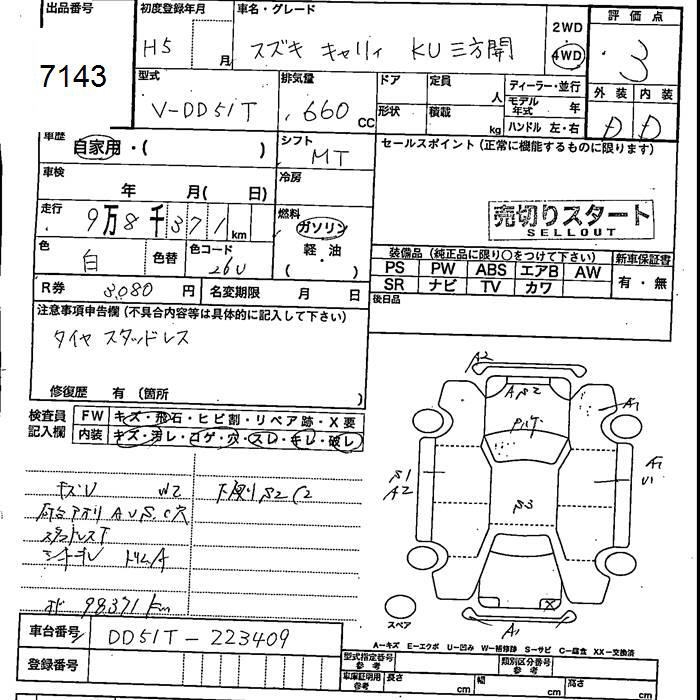 出品番号
初度登録年月
車名・グレード
評価点
7143
H5 月
スズキ キャリィ KU 三方開
2WD
4WD
3
型式
V-DD51T
排気量
660 CC
ドア
形状
定員 人
積載 kg
ディーラー・並行
モデル年式 年
ハンドル 左・右
外装
内装
D
D
車歴
自家用・( )
シフト
MT
セールスポイント(正常に機能するものに限ります)
車検
年 月( 日)
冷房
走行
9万8千371 km
燃料
ガソリン
軽・油
( )
売切りスタート
SELLOUT
色
白
色替
色コード
26U
装備品(純正品に限り○をつけて下さい)
新車保証書
PS PW ABS エアB AW
SR ナビ TV カワ
有・無
R券
8,080 円
名変期限 月 日
後日品
注意事項申告欄(不具合内容等は具体的に記入して下さい)
タイヤ スタッドレス
修復歴 有(箇所 )
検査員
記入欄
FW キズ・飛石・ヒビ割・リペア跡・X要
内装 キズ・汚レ・コゲ・穴・スレ・キレ・破レ
キズU W2
下廻りS2C2
スタッドレスT
98371 km
A2
A1
A1
U1
A2
S3
X
A1
スペア
車台番号
DD51T-223409
登録番号
A-キズ E-エクボ U-凹み W-補修跡 S-サビ C-腐食 XX-交換済
型式指定番号
参考
類別区分番号
参考
車庫証明用
参考
長さ cm
幅 cm
高さ cm